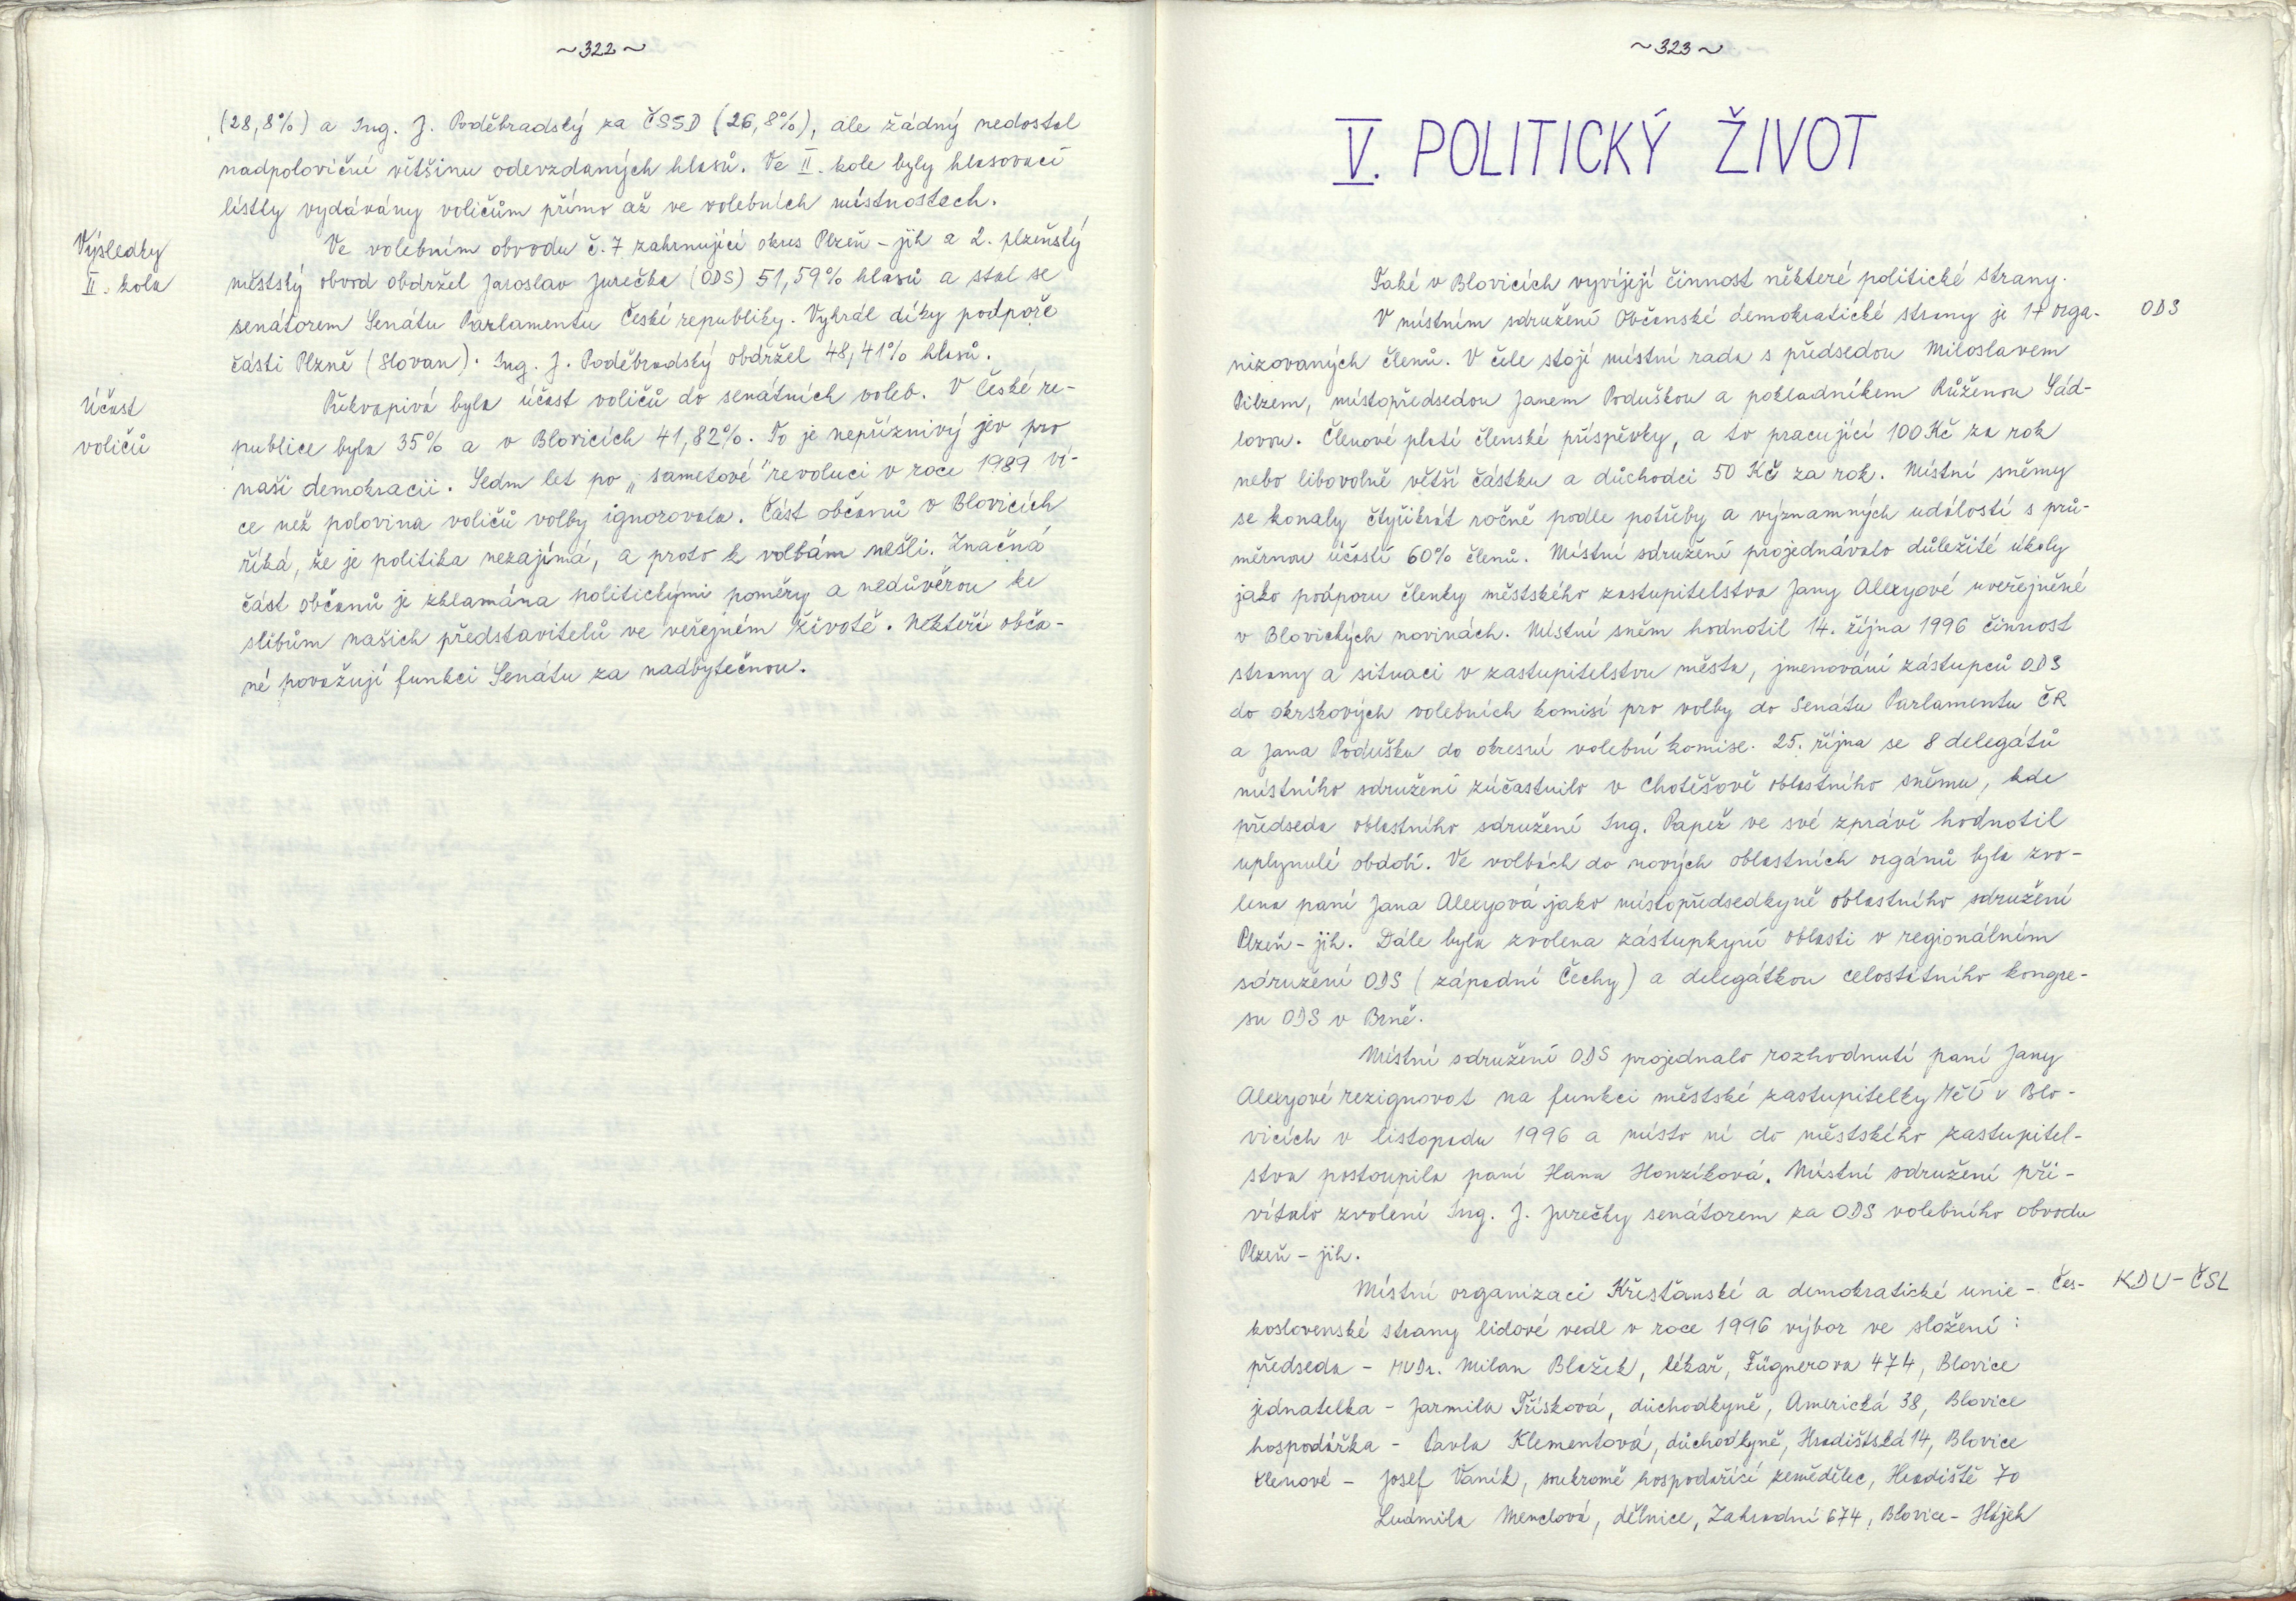 ~322~
(28,8%) a Ing. J. Poděbradský za ČSSD (26,8%), ale žádný nedostal
nadpoloviční většinu odevzdaných hlasů. Ve II. kole byly hlasovací
lístky vydávány voličům přímo až ve volebních místnostech.
Výsledky
II. kola
Ve volebním obvodu č. 7 zahrnující okres Plzeň - jih a 2. plzeňský
městský obvod obdržel Jaroslav Jurečka (ODS) 51,59% hlasů a stal se
senátorem Senátu Parlamentu České republiky. Vyhrál díky podpoře
části Plzně (Slovan). Ing. J. Poděbradský obdržel 48,41% hlasů.
Účast
voličů
Překvapivá byla účast voličů do senátních voleb. V České re-
publice byla 35% a v Blovicích 41,82%. To je nepříznivý jev pro
naši demokracii. Sedm let po „sametové" revoluci v roce 1989 ví-
ce než polovina voličů volby ignorovala. Část občanů v Blovicích
říká, že je politika nezajímá, a proto k volbám nešli. Značná
část občanů je zklamána politickými poměry a nedůvěrou ke
slibům našich představitelů ve veřejném životě. Někteří obča-
né považují funkci Senátu za nadbytečnou.
~323~
V. POLITICKÝ ŽIVOT
Také v Blovicích vyvíjejí činnost některé politické strany.
V místním sdružení Občanské demokratické strany je 17 orga-
ODS
nizovaných členů. V čele stojí místní rada s předsedou Miloslavem
Pilzem, místopředsedou Janem Poduškou a pokladníkem Růženou Sád-
lovou. Členové platí členské příspěvky, a to pracující 100 Kč za rok
nebo libovolně větší částku a důchodci 50 Kč za rok. Místní sněmy
se konaly čtyřikrát ročně podle potřeby a významných událostí s prů-
měrnou účastí 60% členů. Místní sdružení projednávalo důležité úkoly
jako podporu členky městského zastupitelstva Jany Alexyové uveřejněné
v Blovických novinách. Místní sněm hodnotil 14. října 1996 činnost
strany a situaci v zastupitelstvu města, jmenování zástupců ODS
do okrskových volebních komisí pro volby do Senátu Parlamentu ČR
a Jana Podušku do okresní volební komise. 25. října se 8 delegátů
místního sdružení zúčastnilo v Chotěšově oblastního sněmu, kde
předseda oblastního sdružení Ing. Papež ve své zprávě hodnotil
uplynulé období. Ve volbách do nových oblastních orgánů byla zvo-
lena paní Jana Alexyová jako místopředsedkyně oblastního sdružení
Plzeň - jih. Dále byla zvolena zástupkyní oblasti v regionálním
sdružení ODS (západní Čechy) a delegátkou celostátního kongre-
su ODS v Brně.
Místní sdružení ODS projednalo rozhodnutí paní Jany
Alexyové rezignovat na funkci městské zastupitelky MěÚ v Blo-
vicích v listopadu 1996 a místo ní do městského zastupitel-
stva postoupila paní Hana Honzíková. Místní sdružení při-
vítalo zvolení Ing. J. Jurečky senátorem za ODS volebního obvodu
Plzeň - jih.
Místní organizaci Křesťanské a demokratické unie - Čes-
KDU - ČSL
koslovenské strany lidové vedl v roce 1996 výbor ve složení :
předseda - MUDr. Milan Blažek, lékař, Fügnerova 474, Blovice
jednatelka - Jarmila Třísková, důchodkyně, Americká 38, Blovice
hospodářka - Pavla Klementová, důchodkyně, Hradišťská 14, Blovice
členové - Josef Vaník, soukromě hospodařící zemědělec, Hradiště 70
Ludmila Menclová, dělnice, Zahradní 674, Blovice - Hájek